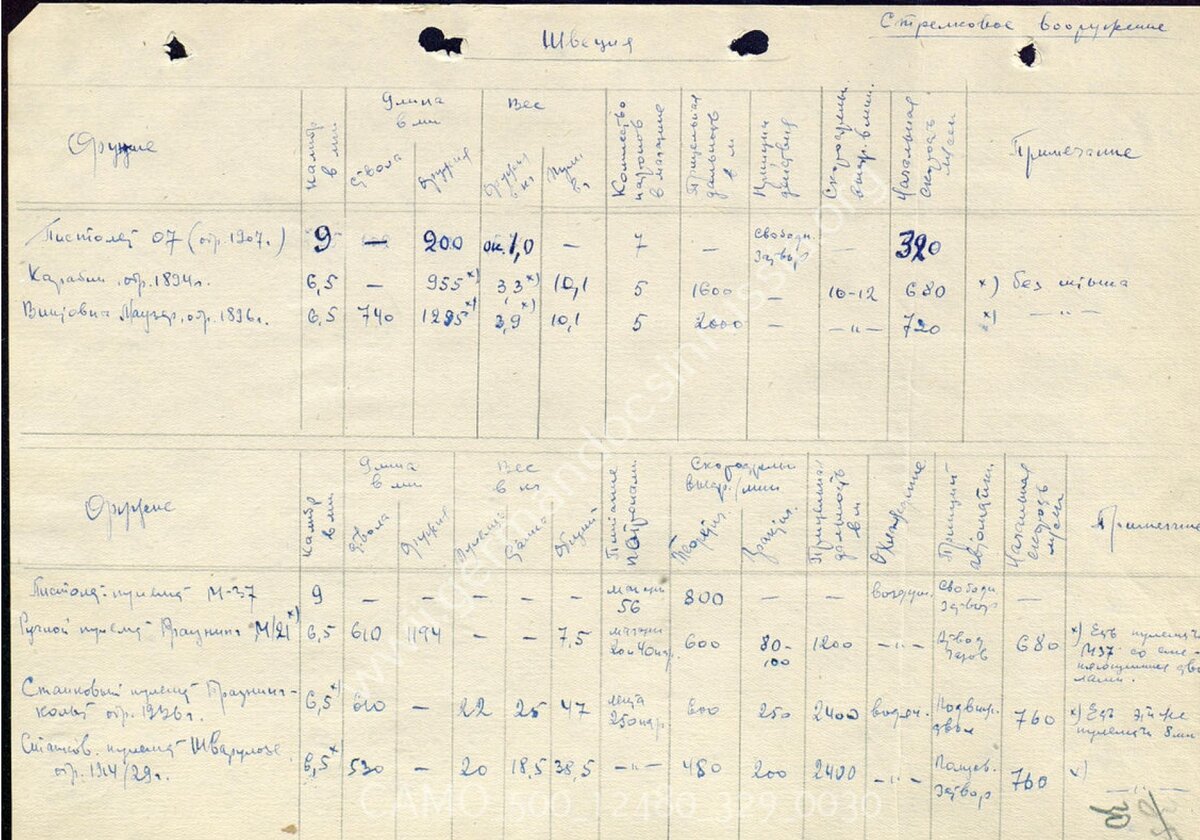 Стрелковое вооружение
Швеция
Оружие | Калибр в мм | Длина в мм: ствола | оружия | Вес: оружия в кг | пули в г. | Количество патронов в магазине | Прицельная дальность в м | Принцип действия | Скорострельн. выстр. в мин. | Начальная скорость м/сек | Примечание
Пистолет 07 (обр. 1907г.) | 9 | — | 200 | ок. 1,0 | — | 7 | — | Свободн. затвор | — | 320
Карабин обр. 1894г. | 6,5 | — | 955 х) | 3,3 х) | 10,1 | 5 | 1600 | — | 10-12 | 680 | х) без штыка
Винтовка Маузер, обр. 1896г. | 6,5 | 740 | 1255 х) | 3,9 х) | 10,1 | 5 | 2000 | — | —"— | 720 | х) —"—
Оружие | Калибр в мм | Длина в мм: ствола | оружия | Вес в кг: | | общий | Питание патронами | Скорострельн. выстр./мин: | | Прицельная дальность в м | Охлаждение | Принцип автоматики | Начальная скорость м/сек | Примечание
Пистолет-пулемет М-37 | 9 | — | — | — | — | — | магазин 56 | 800 | — | — | воздушн. | Свободн. затвор | —
Ручной пулемет Браунинг М/21 х) | 6,5 | 610 | 1194 | — | — | 7,5 | магазин 20 и 40 патр. | 600 | 80-100 | 1200 | —"— | Отвод газов | 680 | х) Есть пулемет М37 со сменяющимися стволами.
Станковый пулемет Браунинг-Кольт обр. 1936г. | 6,5 х) | 610 | — | 22 | 25 | 47 | лента 250 патр. | 600 | 250 | 2400 | водян. | Подвижн. ствол | 760 | х) Есть эти же пулеметы 8 мм
Станков. пулемет Шварцлозе, обр. 1914/29г. | 6,5 х | 530 | — | 20 | 18,5 | 38,5 | —"— | 480 | 200 | 2400 | —"— | Полусв. затвор | 760 | х) —"—
www.wwii.germandocsinrussia.org
CAMO_500_12480_329_0030